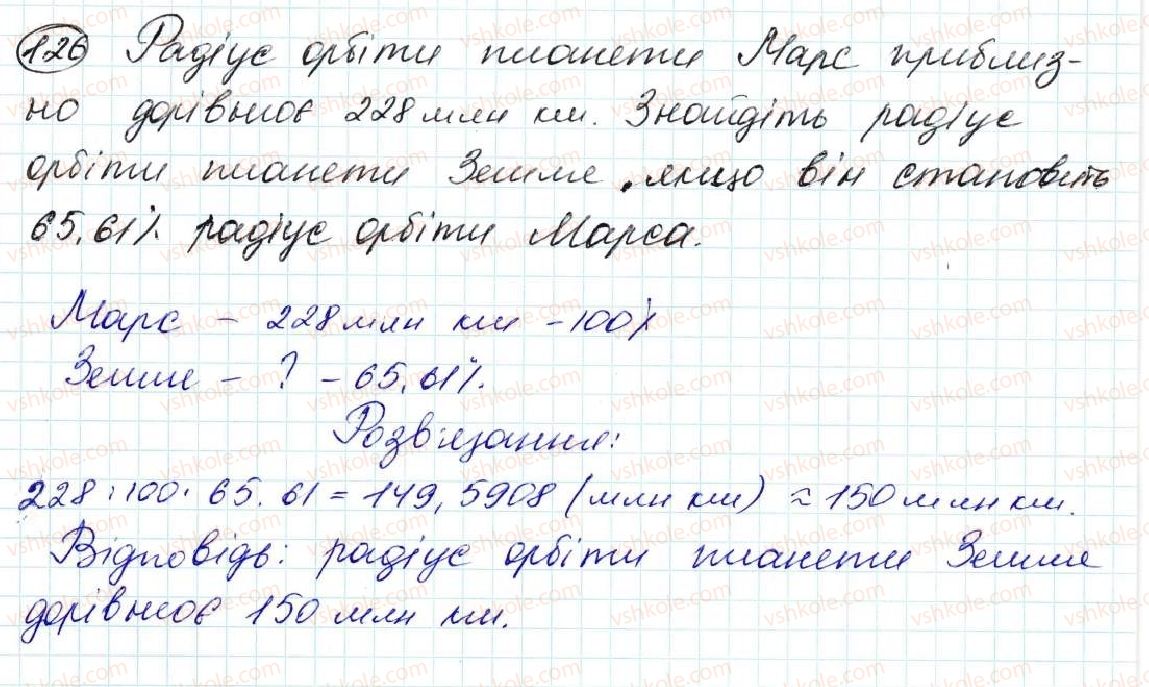 126 Радіус орбіти планети Марс приблиз-
но дорівнює 228 млн км. Знайдіть радіус
орбіти планети Земля, якщо він становить
65,61% радіус орбіти Марса.
Марс - 228 млн км - 100%
Земля - ? - 65,61%.
Розв'язання:
228 : 100 · 65,61 = 149,5908 (млн км) ≈ 150 млн км.
Відповідь: радіус орбіти планети Земля
дорівнює 150 млн км.
vshkole.com